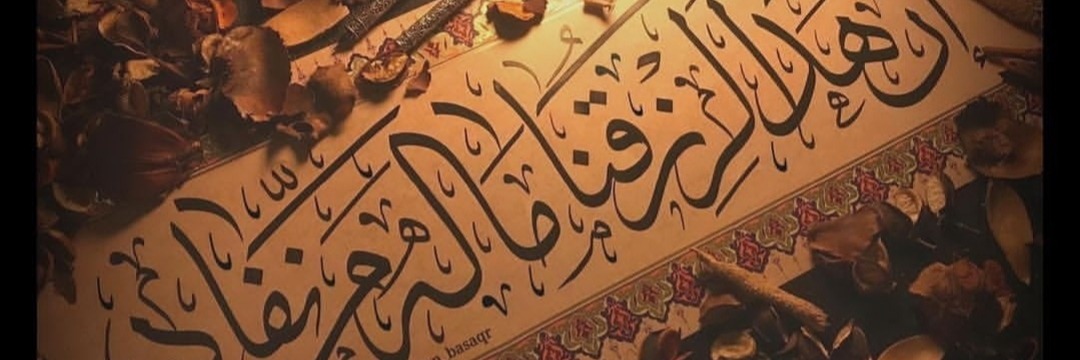 ان هذا لرزقنا ما له من نفاد
basaqr